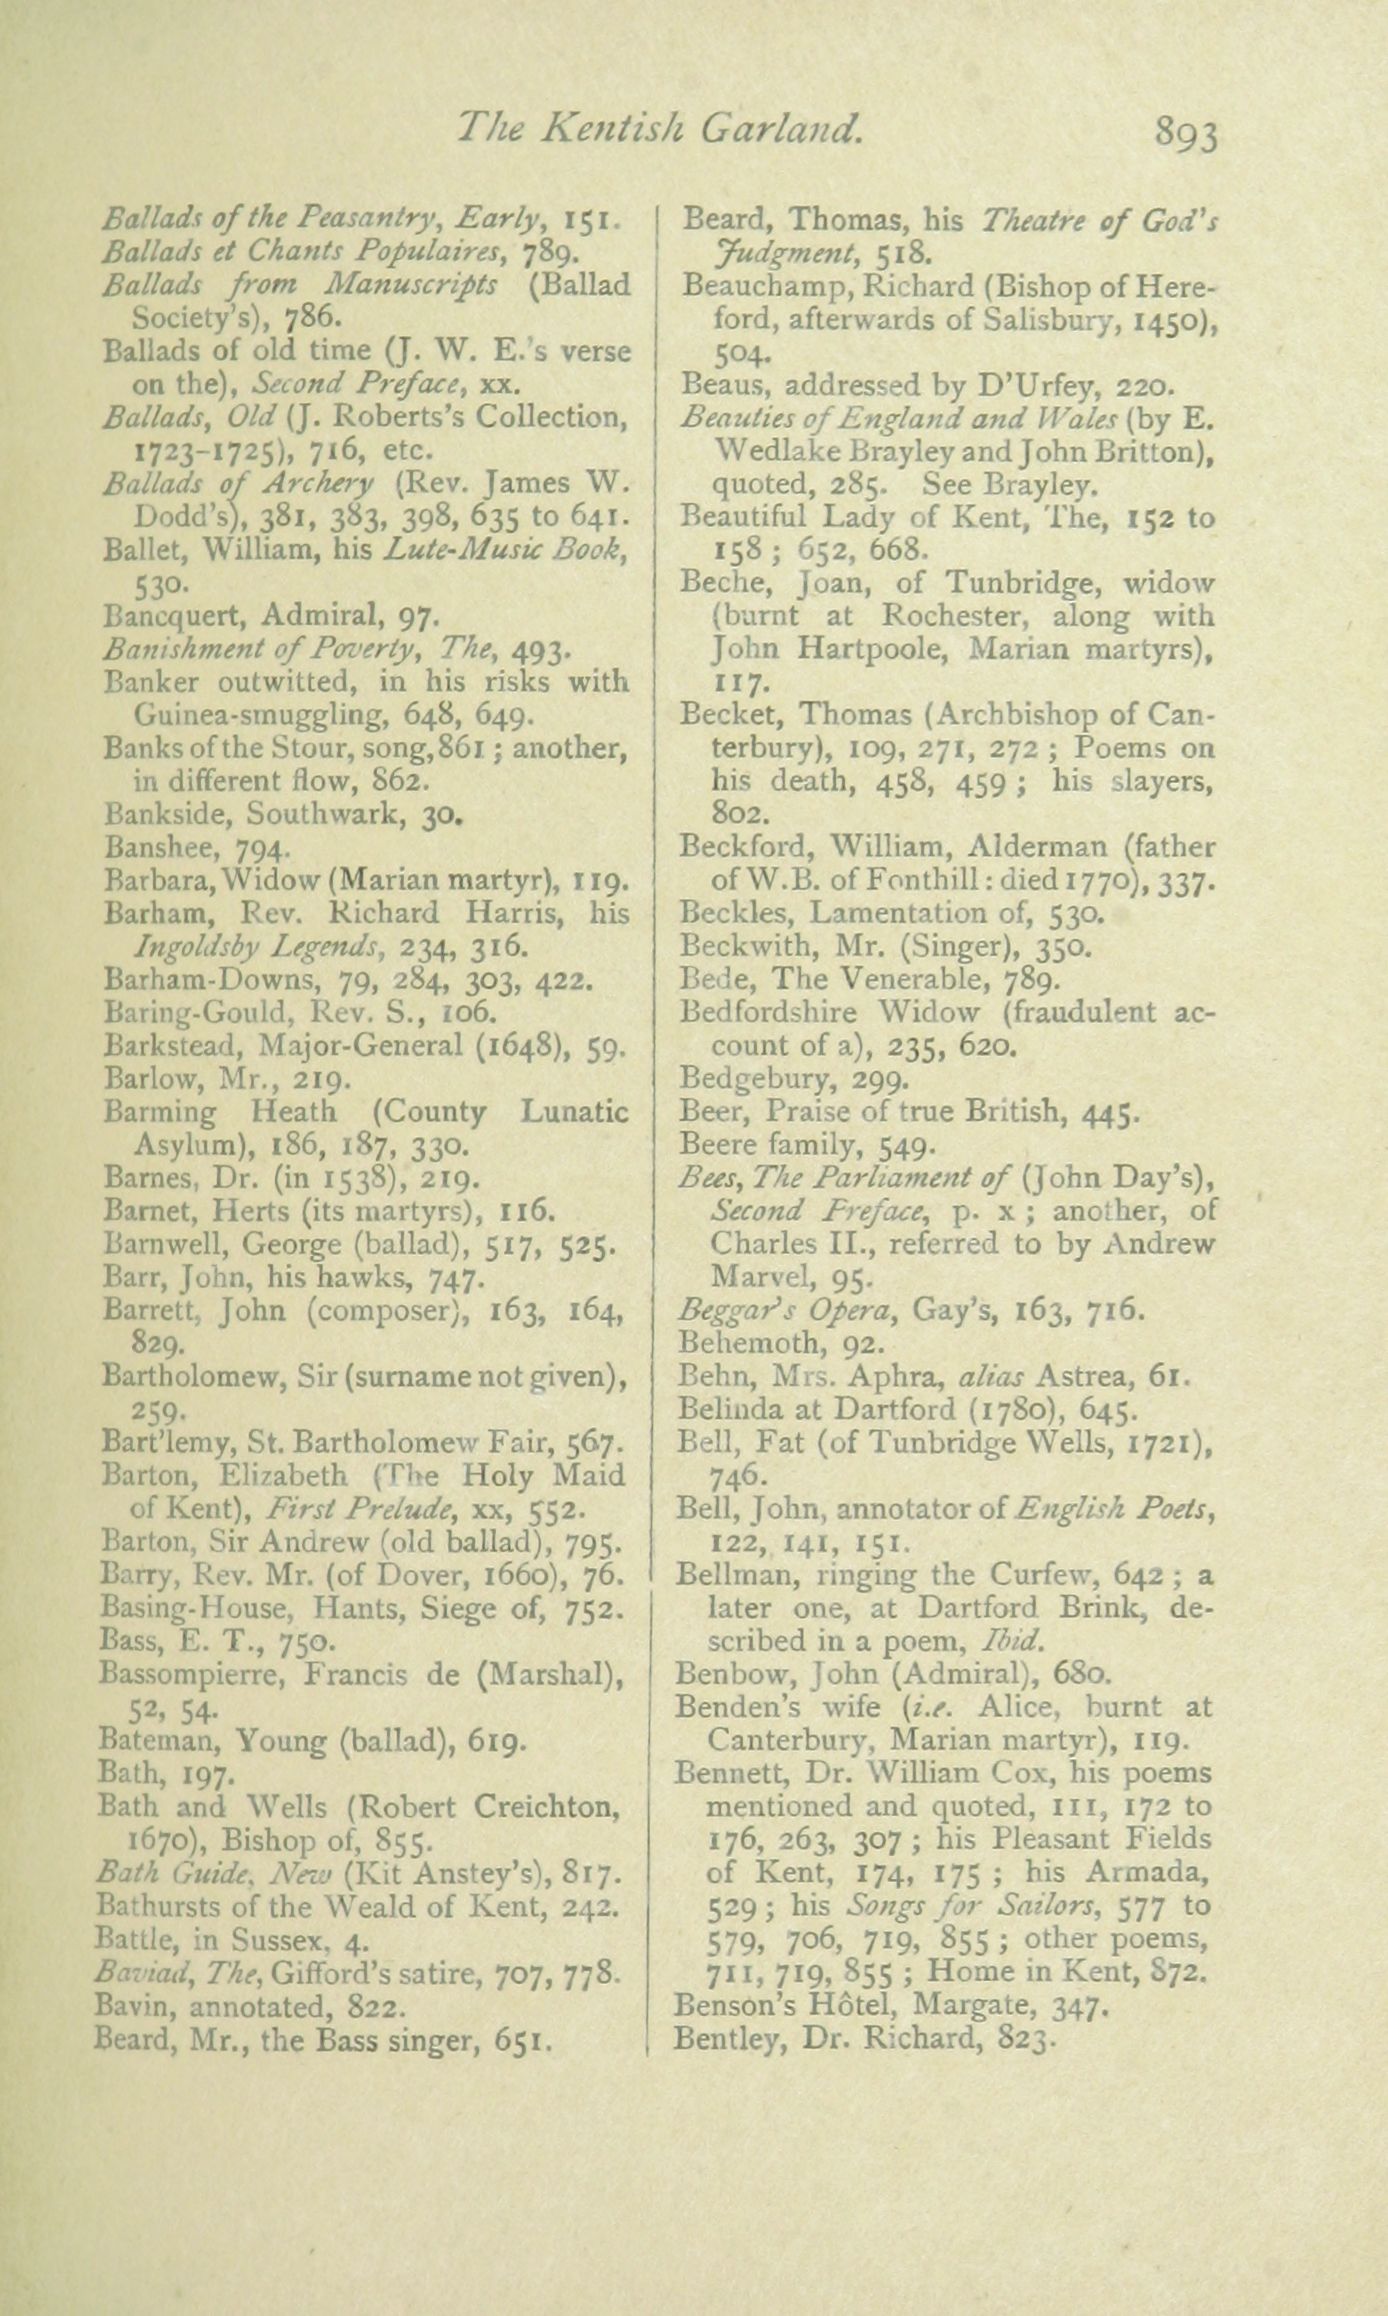 The Kentish Garland. 893
Ballads of the Peasantry, Early, 151.
Ballads et Chants Populaires, 789.
Ballads from Manuscripts (Ballad
Society's), 786.
Ballads of old time (J. W. E.'s verse
on the), Second Preface, xx.
Ballads, Old (J. Roberts's Collection,
1723-1725), 716, etc.
Ballads of Archery (Rev. James W.
Dodd's), 381, 383, 398, 635 to 641.
Ballet, William, his Lute-Music Book,
530.
Bancquert, Admiral, 97.
Banishment of Poverty, The, 493.
Banker outwitted, in his risks with
Guinea-smuggling, 648, 649.
Banks of the Stour, song, 861 ; another,
in different flow, 862.
Bankside, Southwark, 30.
Banshee, 794.
Barbara, Widow (Marian martyr), 119.
Barham, Rev. Richard Harris, his
Ingoldsby Legends, 234, 316.
Barham-Downs, 79, 284, 303, 422.
Baring-Gould, Rev. S., 106.
Barkstead, Major-General (1648), 59.
Barlow, Mr., 219.
Barming Heath (County Lunatic
Asylum), 186, 187, 330.
Barnes, Dr. (in 1538), 219.
Barnet, Herts (its martyrs), 116.
Barnwell, George (ballad), 517, 525.
Barr, John, his hawks, 747.
Barrett, John (composer), 163, 164,
829.
Bartholomew, Sir (surname not given),
259.
Bart'lemy, St. Bartholomew Fair, 567.
Barton, Elizabeth (The Holy Maid
of Kent), First Prelude, xx, 552.
Barton, Sir Andrew (old ballad), 795.
Barry, Rev. Mr. (of Dover, 1660), 76.
Basing-House, Hants, Siege of, 752.
Bass, E. T., 750.
Bassompierre, Francis de (Marshal),
52, 54.
Bateman, Young (ballad), 619.
Bath, 197.
Bath and Wells (Robert Creichton,
1670), Bishop of, 855.
Bath Guide, New (Kit Anstey's), 817.
Bathursts of the Weald of Kent, 242.
Battle, in Sussex, 4.
Baviad, The, Gifford's satire, 707, 778.
Bavin, annotated, 822.
Beard, Mr., the Bass singer, 651.
Beard, Thomas, his Theatre of God's
Judgment, 518.
Beauchamp, Richard (Bishop of Here-
ford, afterwards of Salisbury, 1450),
504.
Beaus, addressed by D'Urfey, 220.
Beauties of England and Wales (by E.
Wedlake Brayley and John Britton),
quoted, 285. See Brayley.
Beautiful Lady of Kent, The, 152 to
158 ; 652, 668.
Beche, Joan, of Tunbridge, widow
(burnt at Rochester, along with
John Hartpoole, Marian martyrs),
117.
Becket, Thomas (Archbishop of Can-
terbury), 109, 271, 272 ; Poems on
his death, 458, 459 ; his slayers,
802.
Beckford, William, Alderman (father
of W.B. of Fonthill : died 1770), 337.
Beckles, Lamentation of, 530.
Beckwith, Mr. (Singer), 350.
Bede, The Venerable, 789.
Bedfordshire Widow (fraudulent ac-
count of a), 235, 620.
Bedgebury, 299.
Beer, Praise of true British, 445.
Beere family, 549.
Bees, The Parliament of (John Day's),
Second Preface, p. x ; another, of
Charles II., referred to by Andrew
Marvel, 95.
Beggar's Opera, Gay's, 163, 716.
Behemoth, 92.
Behn, Mrs. Aphra, alias Astrea, 61.
Belinda at Dartford (1780), 645.
Bell, Fat (of Tunbridge Wells, 1721),
746.
Bell, John, annotator of English Poets,
122, 141, 151.
Bellman, ringing the Curfew, 642 ; a
later one, at Dartford Brink, de-
scribed in a poem, Ibid.
Benbow, John (Admiral), 680.
Benden's wife (i.e. Alice, burnt at
Canterbury, Marian martyr), 119.
Bennett, Dr. William Cox, his poems
mentioned and quoted, 111, 172 to
176, 263, 307 ; his Pleasant Fields
of Kent, 174, 175 ; his Armada,
529 ; his Songs for Sailors, 577 to
579, 706, 719, 855 ; other poems,
711, 719, 855 ; Home in Kent, 872.
Benson's Hôtel, Margate, 347.
Bentley, Dr. Richard, 823.